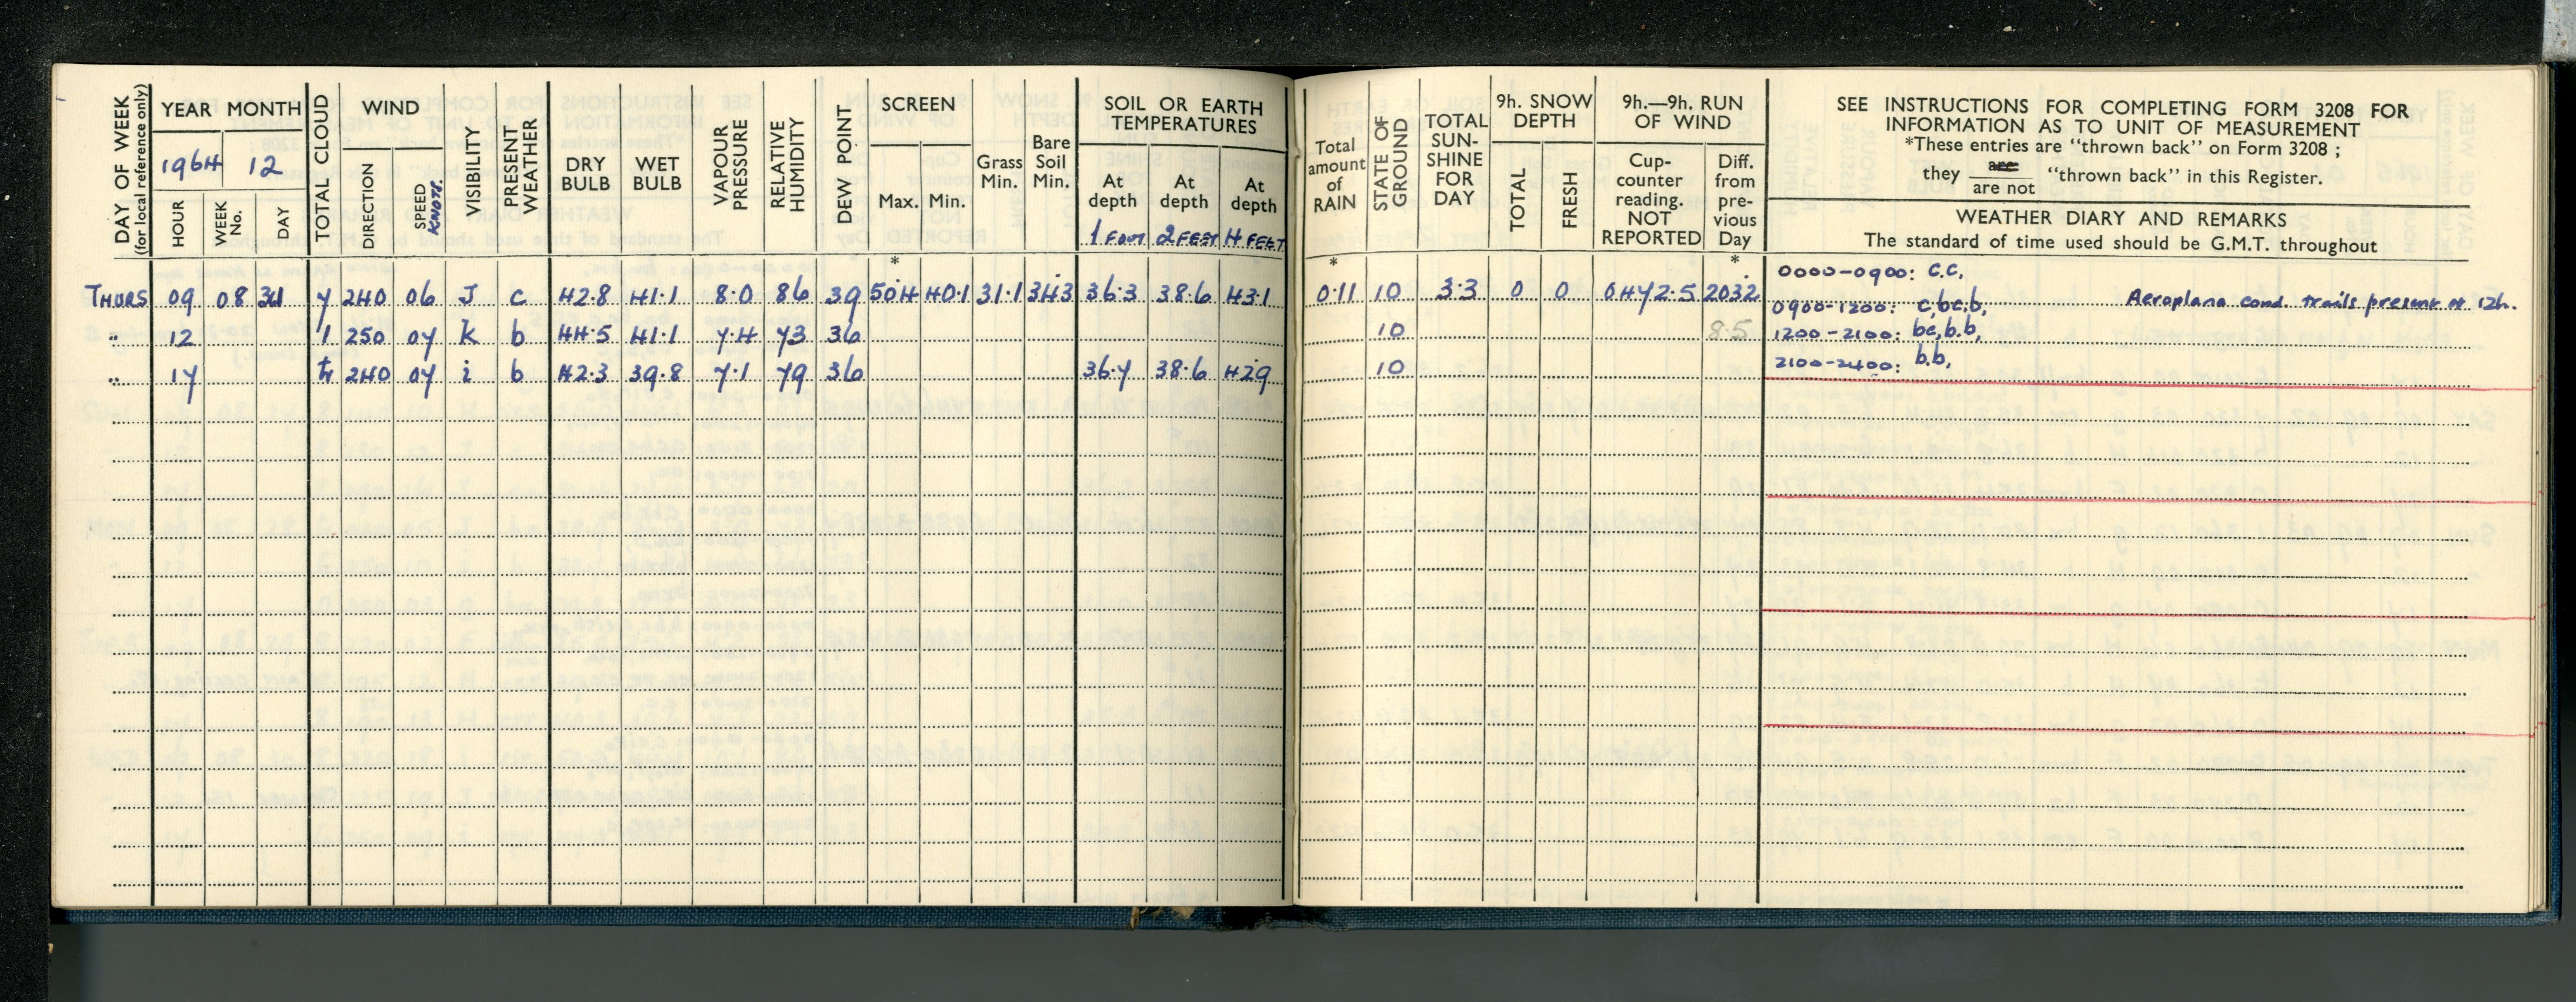 DAY OF WEEK
(for local reference only)
YEAR MONTH
1964 12
HOUR
WEEK No.
DAY
TOTAL CLOUD
WIND
DIRECTION
SPEED
KNOTS.
VISIBILITY
PRESENT WEATHER
DRY BULB
WET BULB
VAPOUR PRESSURE
RELATIVE HUMIDITY
DEW POINT
SCREEN
Max. Min.
Grass Min.
Bare Soil Min.
SOIL OR EARTH TEMPERATURES
At depth At depth At depth
1 FOOT 2 FEET 4 FEET
Total amount of RAIN
STATE OF GROUND
TOTAL SUN-SHINE FOR DAY
9h. SNOW DEPTH
TOTAL
FRESH
9h.—9h. RUN OF WIND
Cup-counter reading. NOT REPORTED
Diff. from pre-vious Day
SEE INSTRUCTIONS FOR COMPLETING FORM 3208 FOR
INFORMATION AS TO UNIT OF MEASUREMENT
*These entries are "thrown back" on Form 3208 ;
they are / are not "thrown back" in this Register.
WEATHER DIARY AND REMARKS
The standard of time used should be G.M.T. throughout
* * *
THURS 09 08 31 7 240 06 J c 42.8 41.1 8.0 86 39 50.4 40.1 31.1 34.3 36.3 38.6 43.1 0.11 10 3.3 0 0 0472.5 203.2
0000-0900: c.c.
0900-1200: c,bc,b, Aeroplane cond. trails present at 12h.
" 12 1 250 07 k b 44.5 41.1 7.4 73 36 10 8.5 1200-2100: bc,b.b,
" 17 240 07 i b 42.3 39.8 7.1 79 36 36.7 38.6 42.9 10 2100-2400: b.b,